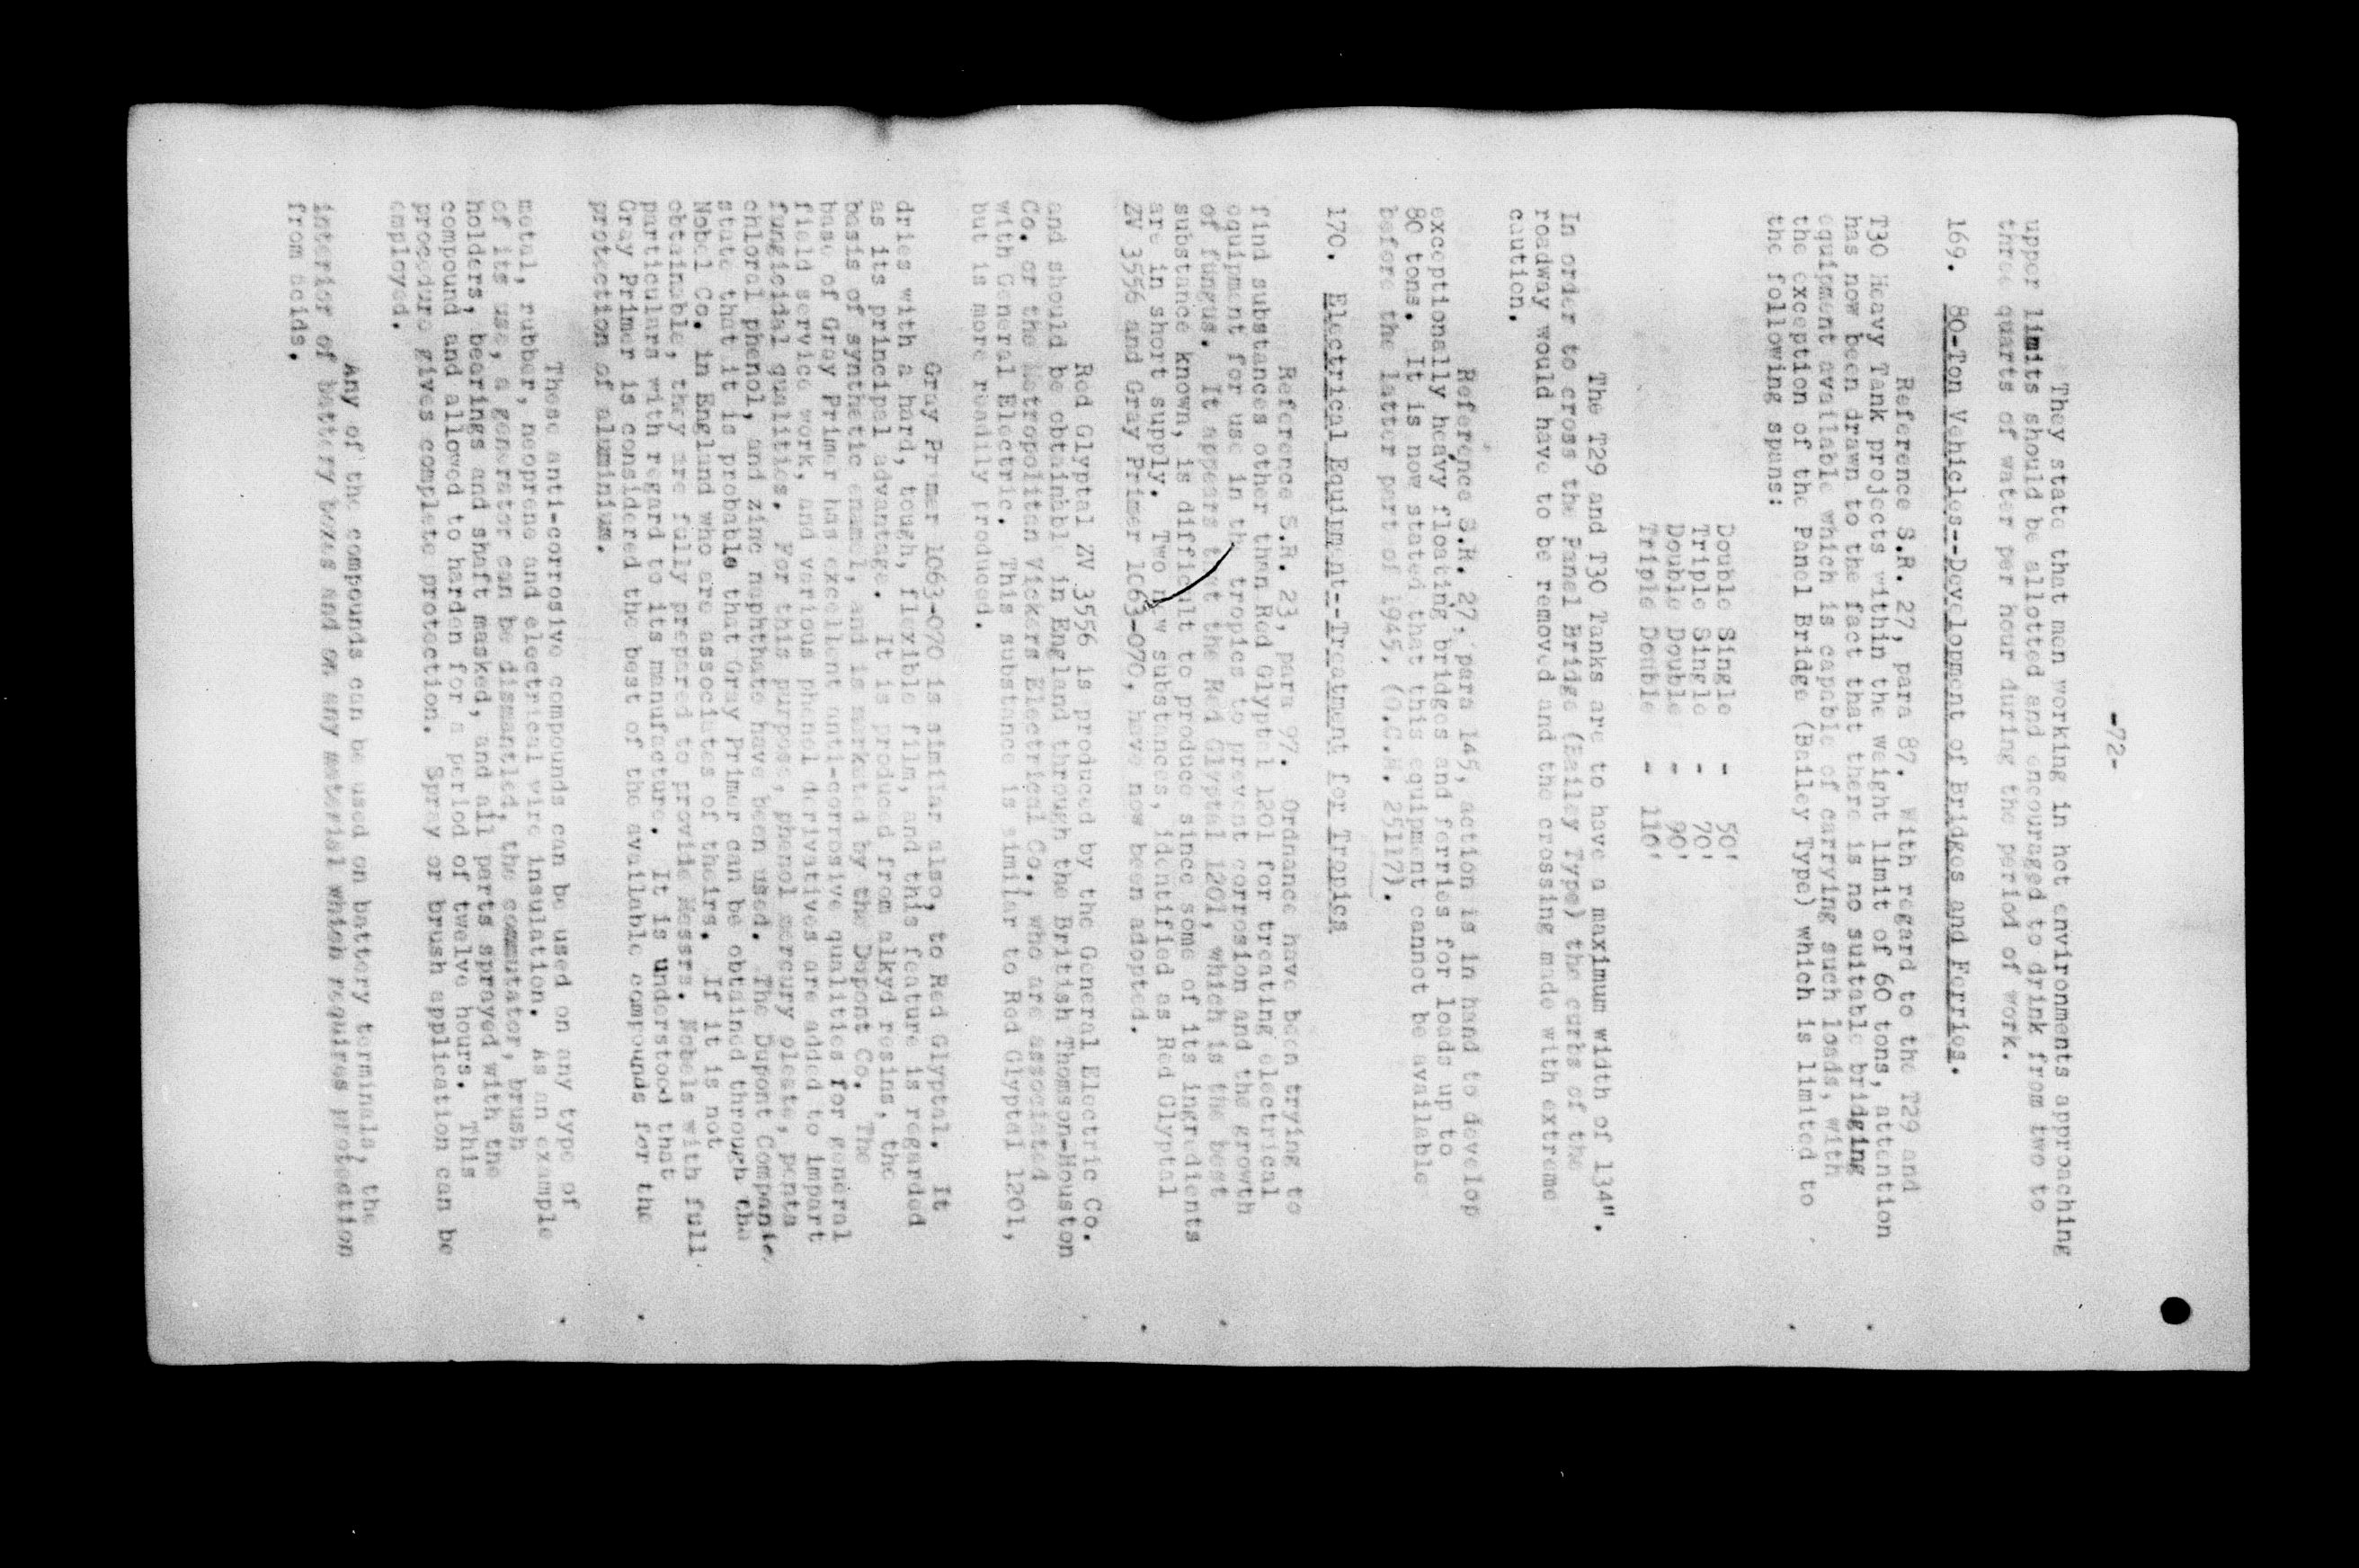 -72-
They state that men working in hot environments approaching
upper limits should be allotted and encouraged to drink from two to
three quarts of water per hour during the period of work.
169. 80-Ton Vehicles--Development of Bridges and Ferries.
Reference S.R. 27, para 87. With regard to the T29 and
T30 Heavy Tank projects within the weight limit of 60 tons, attention
has now been drawn to the fact that there is no suitable bridging
equipment available which is capable of carrying such loads, with
the exception of the Panel Bridge (Bailey Type) which is limited to
the following spans:
Double Single - 50'
Triple Single - 70'
Double Double - 90'
Triple Double - 110'
The T29 and T30 Tanks are to have a maximum width of 134".
In order to cross the Panel Bridge (Bailey Type) the curbs of the
roadway would have to be removed and the crossing made with extreme
caution.
Reference S.R. 27, para 145, action is in hand to develop
exceptionally heavy floating bridges and ferries for loads up to
80 tons. It is now stated that this equipment cannot be available
before the latter part of 1945, (O.C.M. 25117).
170. Electrical Equipment--Treatment for Tropics
Reference S.R. 23, para 97. Ordnance have been trying to
find substances other than Red Glyptal 1201 for treating electrical
equipment for use in the tropics to prevent corrosion and the growth
of fungus. It appears that the Red Glyptal 1201, which is the best
substance known, is difficult to produce since some of its ingredients
are in short supply. Two new substances, identified as Red Glyptal
ZV 3556 and Gray Primer 1063-070, have now been adopted.
Red Glyptal ZV 3556 is produced by the General Electric Co.
and should be obtainabl in England through the British Thomson-Houston
Co. or the Metropolitan Vickers Electrical Co., who are associated
with General Electric. This substance is similar to Red Glyptal 1201,
but is more readily produced.
Gray Primer 1063-070 is similar also, to Red Glyptal. It
dries with a hard, tough, flexible film, and this feature is regarded
as its principal advantage. It is produced from alkyd resins, the
basis of synthetic enamel, and is marketed by the Dupont Co. The
base of Gray Primer has excellent anti-corrosive qualities for general
field service work, and various phenol derivatives are added to impart
fungicidal qualities. For this purpose, phenol mercury oleate, penta
chloral phenol, and zinc naphthate have been used. The Dupont Companie
state that it is probable that Gray Primer can be obtained through the
Nobel Co. in England who are associates of theirs. If it is not
obtainable, they are fully prepared to provide Messrs. Nobels with full
particulars with regard to its manufacture. It is understood that
Gray Primer is considered the best of the available compounds for the
protection of aluminium.
These anti-corrosive compounds can be used on any type of
metal, rubber, neoprene and electrical wire insulation. As an example
of its use, a generator can be dismantled, the commutator, brush
holders, bearings and shaft masked, and all parts sprayed with the
compound and allowed to harden for a period of twelve hours. This
procedure gives complete protection. Spray or brush application can be
employed.
Any of the compounds can be used on battery terminals, the
interior of battery boxes and on any material which requires protection
from acids.